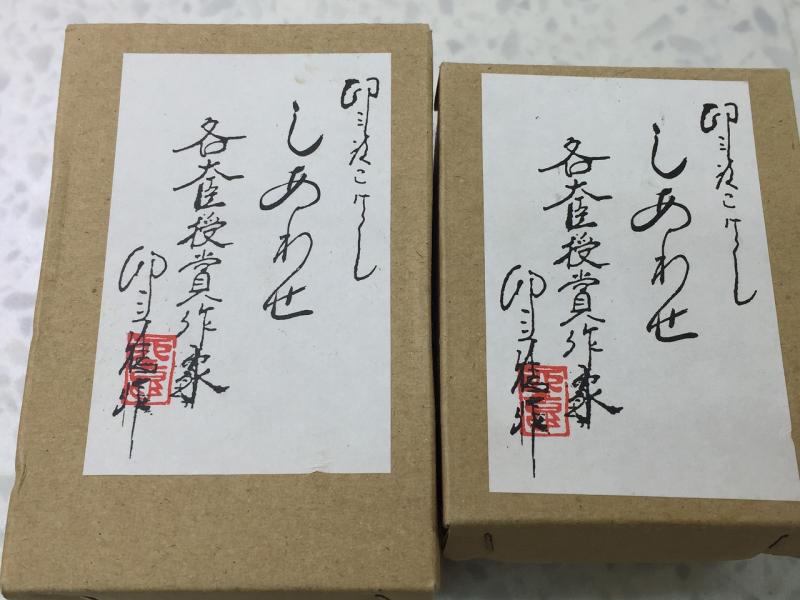 卯三郎こけし
しあわせ
各大臣授賞作家
卯三
卯三郎こけし
しあわせ
各大臣授賞作家
卯三